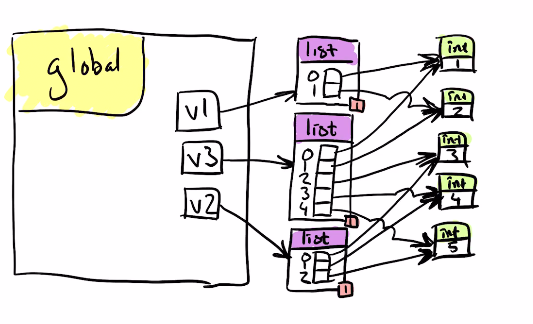 global
v1
v3
v2
list
0
1
1
list
0
1
2
3
4
1
list
0
1
2
1
int
1
int
2
int
3
int
4
int
5